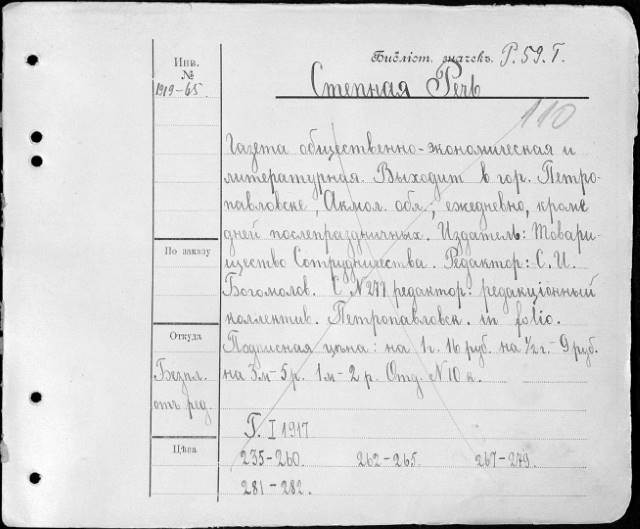 Инв.
№
1919-65.
Библіот. значекъ. Р.59.Г.
Степная Речь
110
Газета общественно-экономическая и
литературная. Выходит в гор. Петро-
павловске, Акмол. обл., ежедневно, кроме
дней послепраздничных. Издатель: Товари-
щество Сотрудничества. Редактор: С. И.
Богомолов. С N 277 редактор: редакціонный
коллектив. Петропавловск. in folio.
Подписная цѣна: на 1 г. 16 руб. на 1/2 г. - 9 руб.
на 3 м - 5 р. 1 м - 2 р. Отд. N 10 к.
По заказу
Откуда
Безпл.
отъ ред.
Цѣна
Г. I 1917.
235-260. 262-265. 267-279.
281-282.